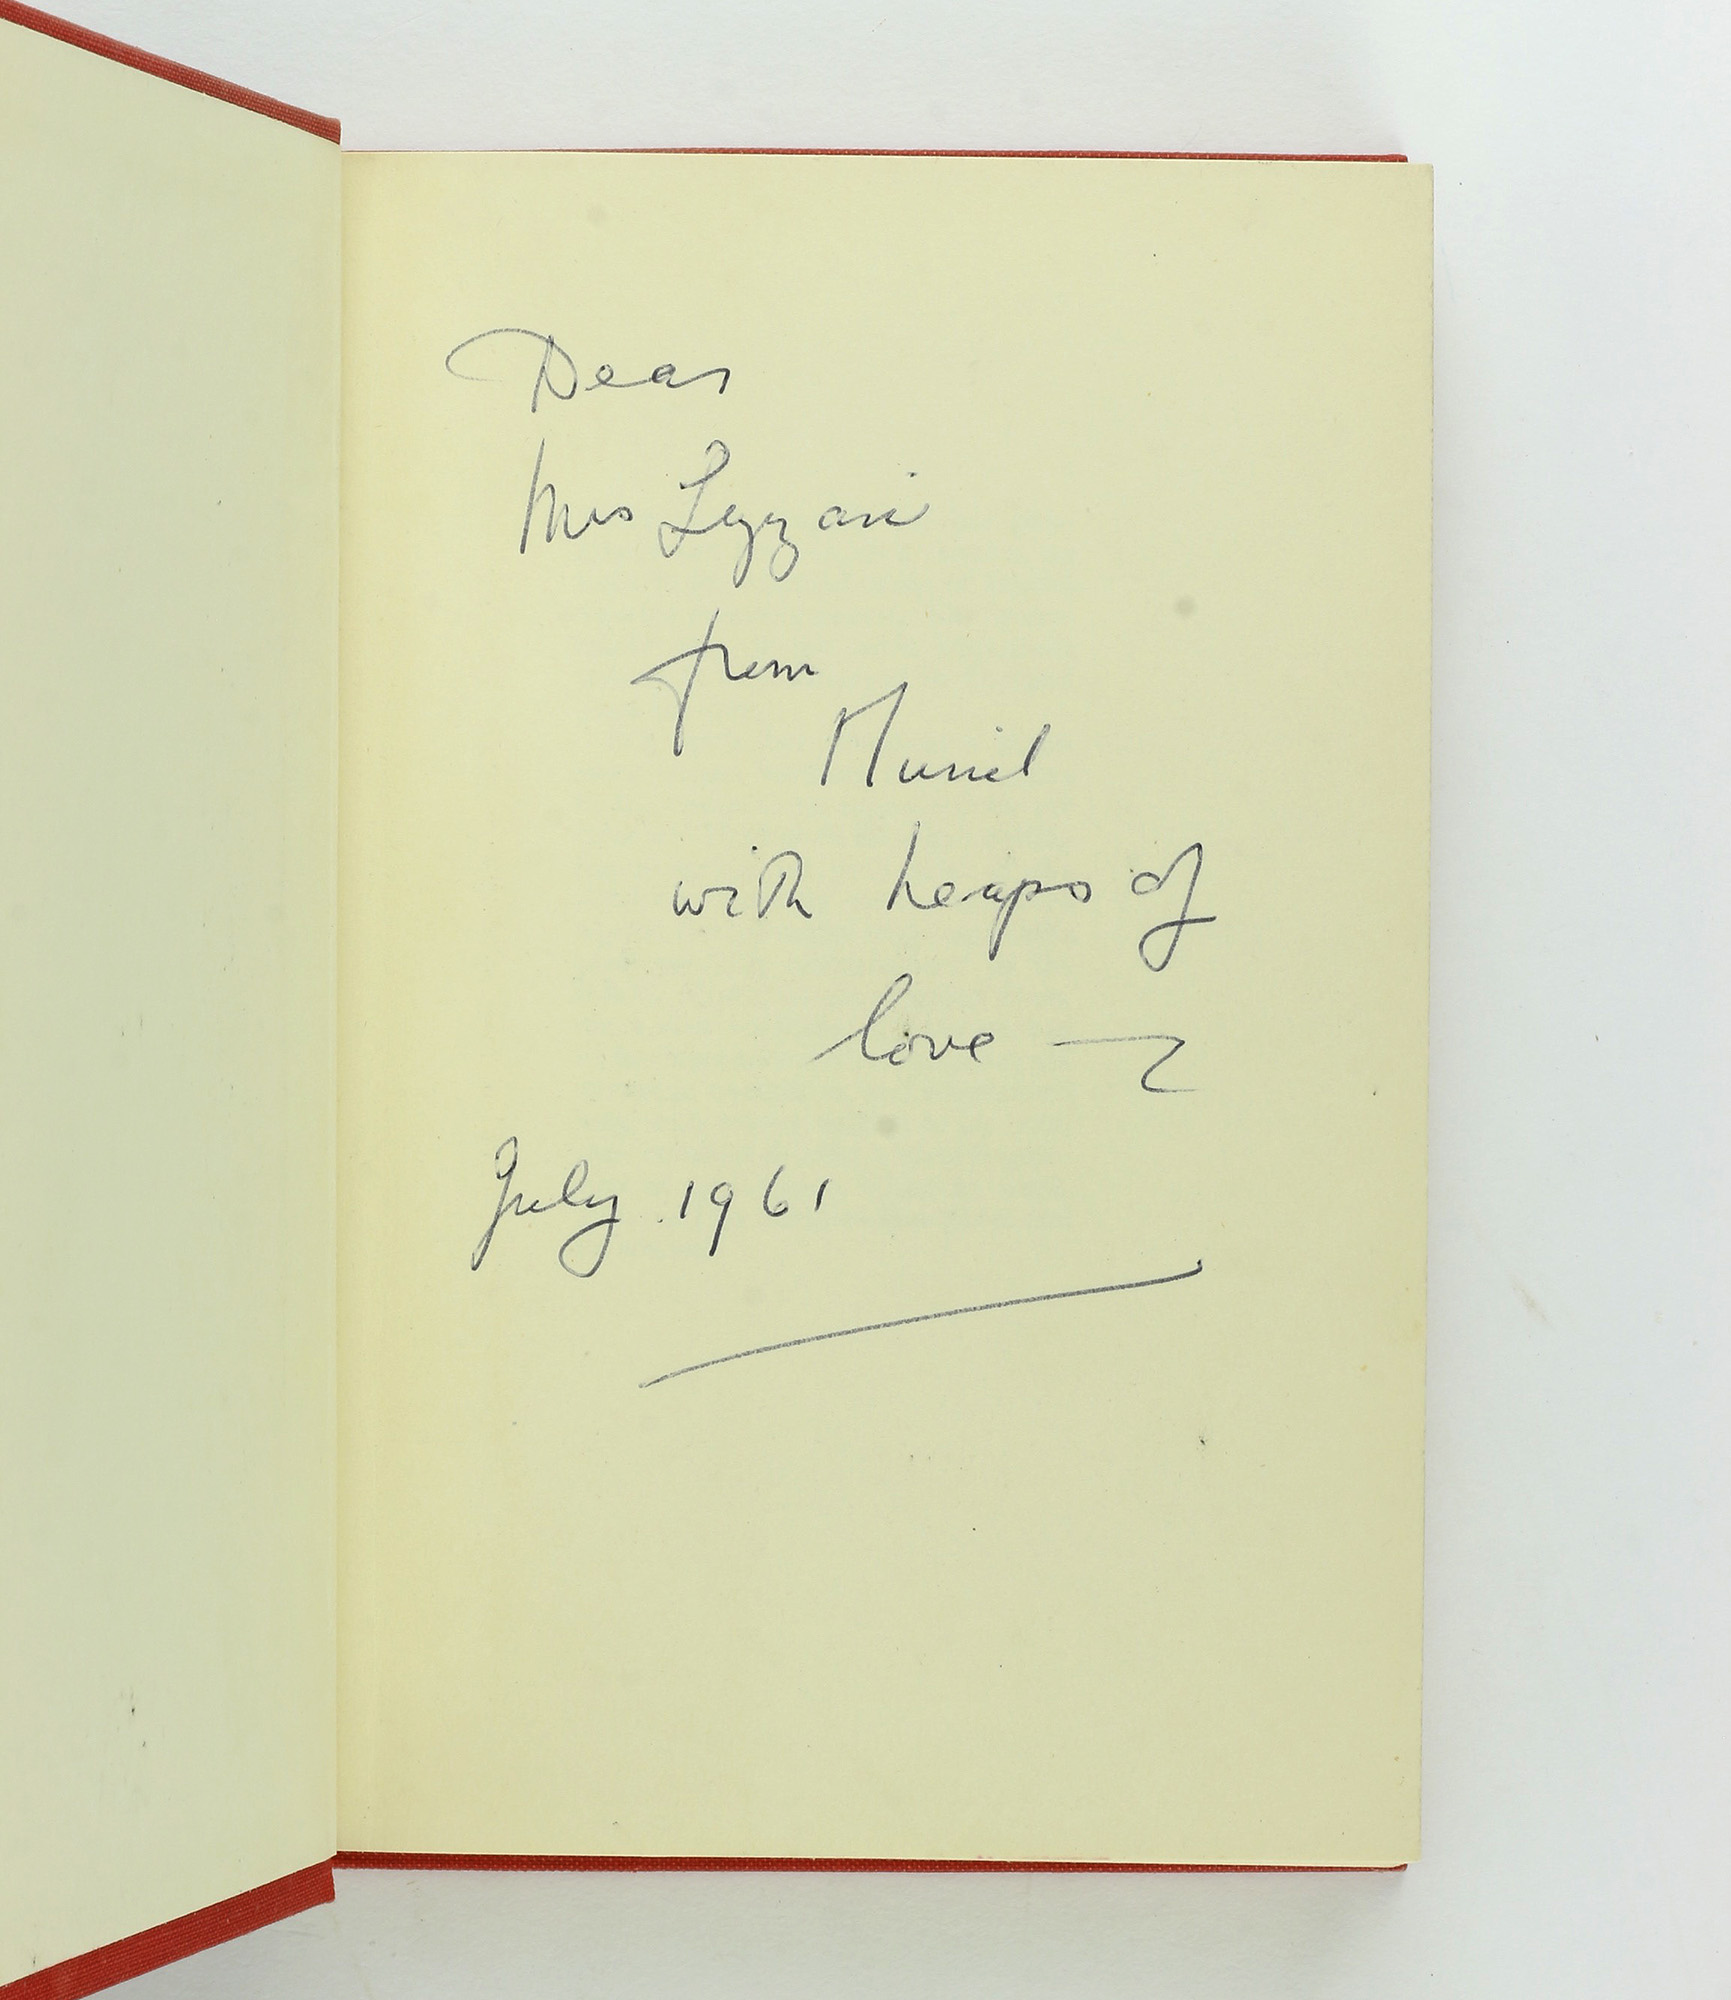 Dear
Mrs Lyzzari
from
Muriel
with heaps of
love —
July 1961